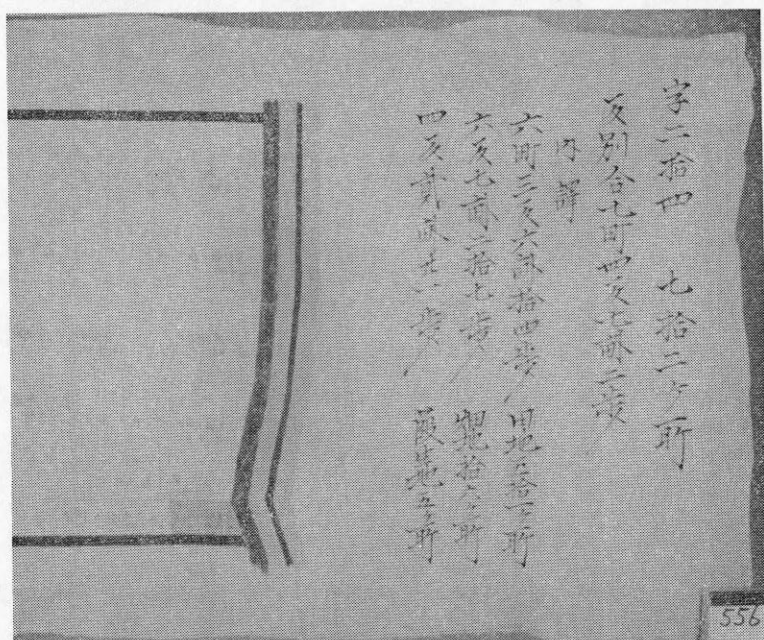 字二拾四 七拾二ヶ所
反別合七町四反七畝二歩
内譯
六町三反六畝拾四歩 田地五拾一ヶ所
六反七畝二拾七歩 拾六ヶ所
四反貳畝廿一歩 五ヶ所
556